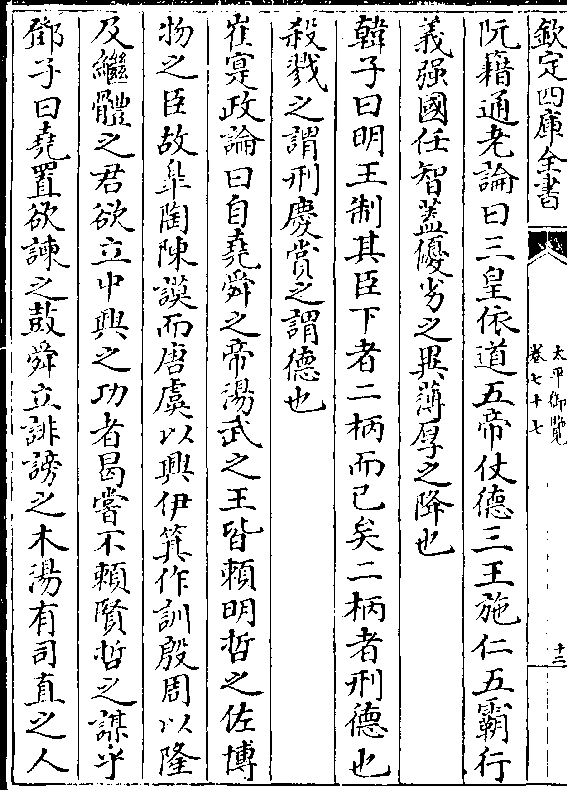 欽定四庫全書
太平御覽
卷七十七
十三
阮籍通老論曰三皇依道五帝仗德三王施仁五霸行
義强國任智蓋優劣之異薄厚之降也
韓子曰明王制其臣下者二柄而已矣二柄者刑德也
殺戮之謂刑慶賞之謂德也
崔寔政論曰自堯舜之帝湯武之王皆賴明哲之佐博
物之臣故臯陶陳謨而唐虞以興伊箕作訓殷周以隆
及繼體之君欲立中興之功者曷嘗不賴賢哲之謀乎
鄧子曰堯置欲諫之鼓舜立誹謗之木湯有司直之人